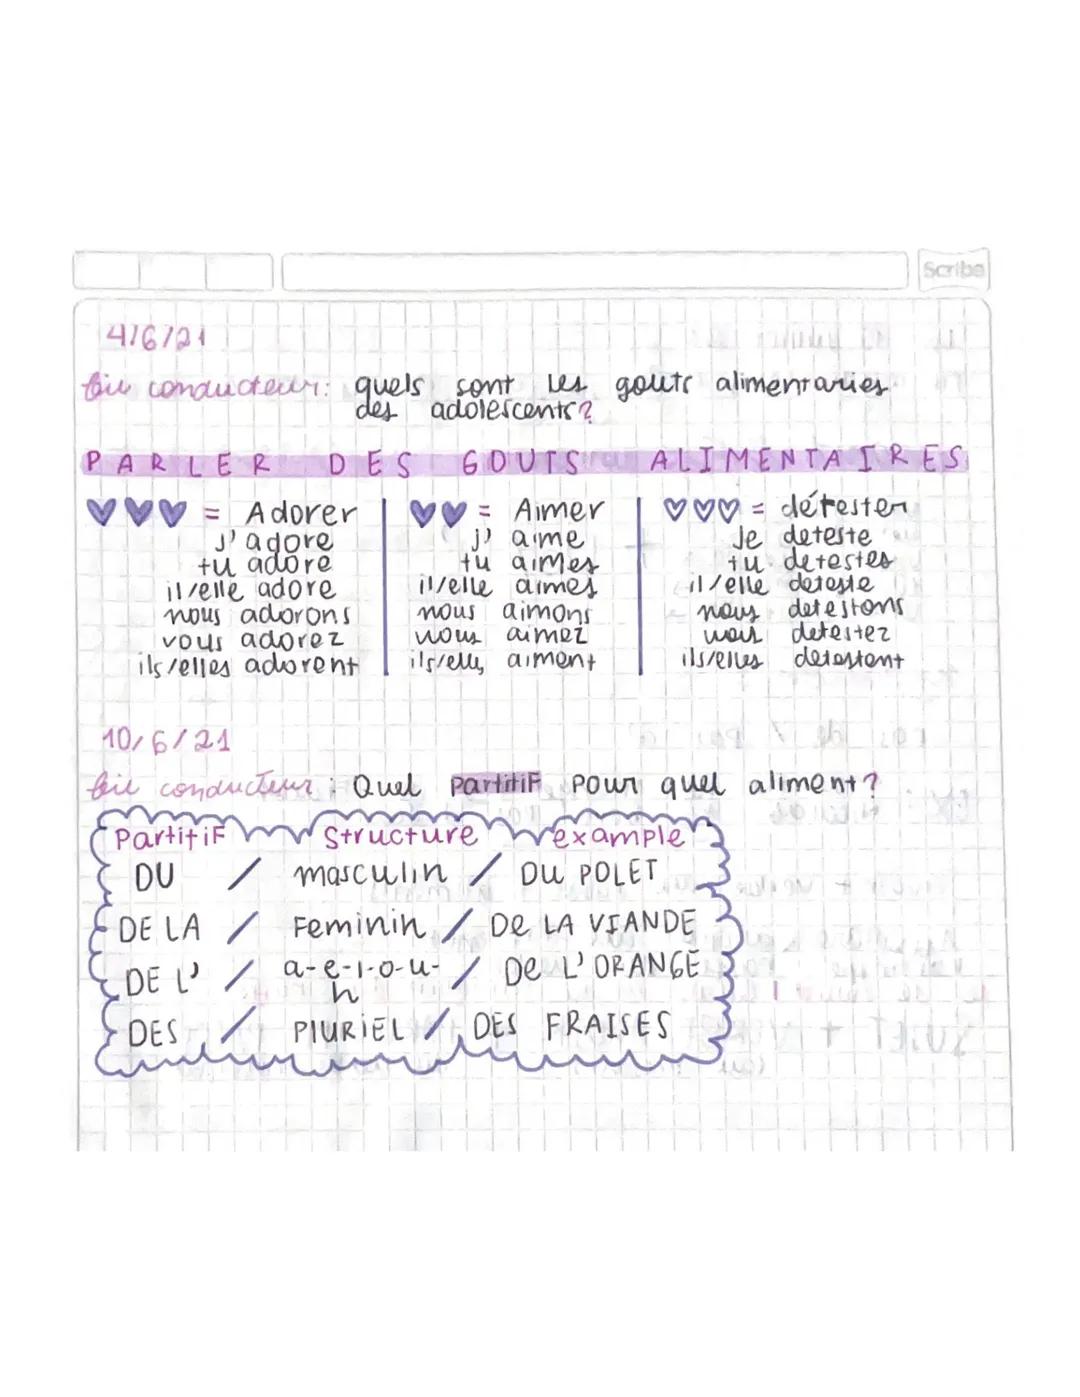 Scribe
4/6/21
fil conducteur: quels sont les gouts alimentaries
des adolescents?
PARLER DES GOUTS ALIMENTAIRES
= Adorer = Aimer = détester
j'adore j' aime Je deteste
tu adore tu aimes tu detestes
il/elle adore il/elle aimes il/elle deteste
nous adorons nous aimons nous detestons
vous adorez vous aimez vous detestez
ils/elles adorent ils/elles aiment ils/elles detestent
10/6/21
fil conducteur: Quel partitif pour quel aliment?
Partitif Structure example
DU / masculin / DU POLET
DE LA / Feminin / De LA VIANDE
DE L' / a-e-i-o-u- / De L'ORANGE
h
DES / PlURiEL / DES FRAISES